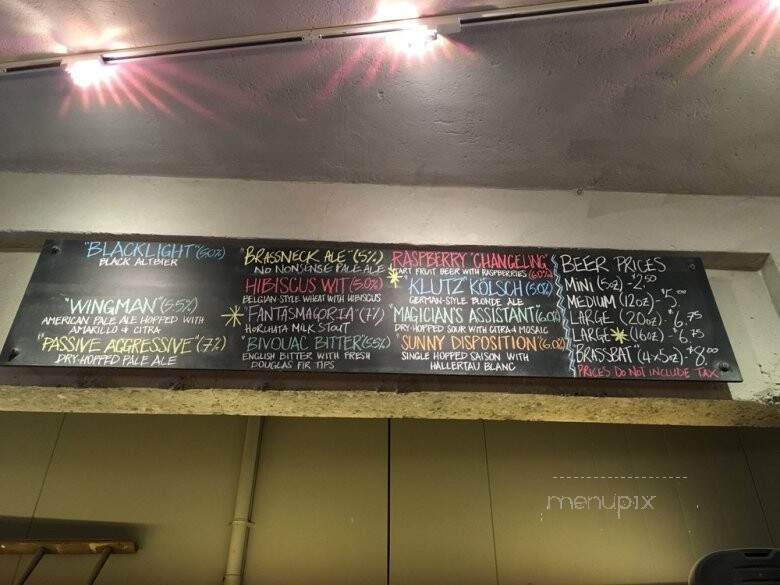 "BLACKLIGHT" (5.0%)
BLACK ALTBIER
"WINGMAN" (5.5%)
AMERICAN PALE ALE HOPPED WITH
AMARILLO & CITRA
"PASSIVE AGGRESSIVE" (7.2%)
DRY-HOPPED PALE ALE
"BRASSNECK ALE" (5%)
NO NONSENSE PALE ALE
HIBISCUS WIT (5.0%)
BELGIAN-STYLE WHEAT WITH HIBISCUS
"FANTASMAGORIA"
HORCHATA MILK STOUT
"BIVOUAC BITTER" (5.5%)
ENGLISH BITTER WITH FRESH
DOUGLAS FIR TIPS
RASPBERRY "CHANGELING"
TART FRUIT BEER WITH RASPBERRIES (6.0%)
"KLUTZ" KÖLSCH (5.0%)
GERMAN-STYLE BLONDE ALE
"MAGICIAN'S ASSISTANT" (6.0%)
DRY-HOPPED SOUR WITH CITRA & MOSAIC
"SUNNY DISPOSITION" (6.0%)
SINGLE HOPPED SAISON WITH
HALLERTAU BLANC
BEER PRICES
MINI (5oz) - $2.50
MEDIUM (12oz) - $5.00
LARGE (20oz) - $6.75
LARGE (16oz) - $6.75
BRASSBAT (4x5oz) - $8.00
PRICES DO NOT INCLUDE TAX
menupix